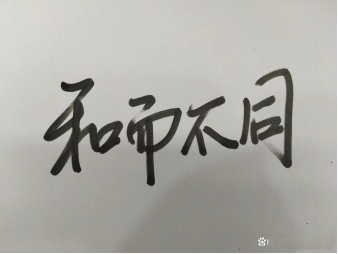 和而不同